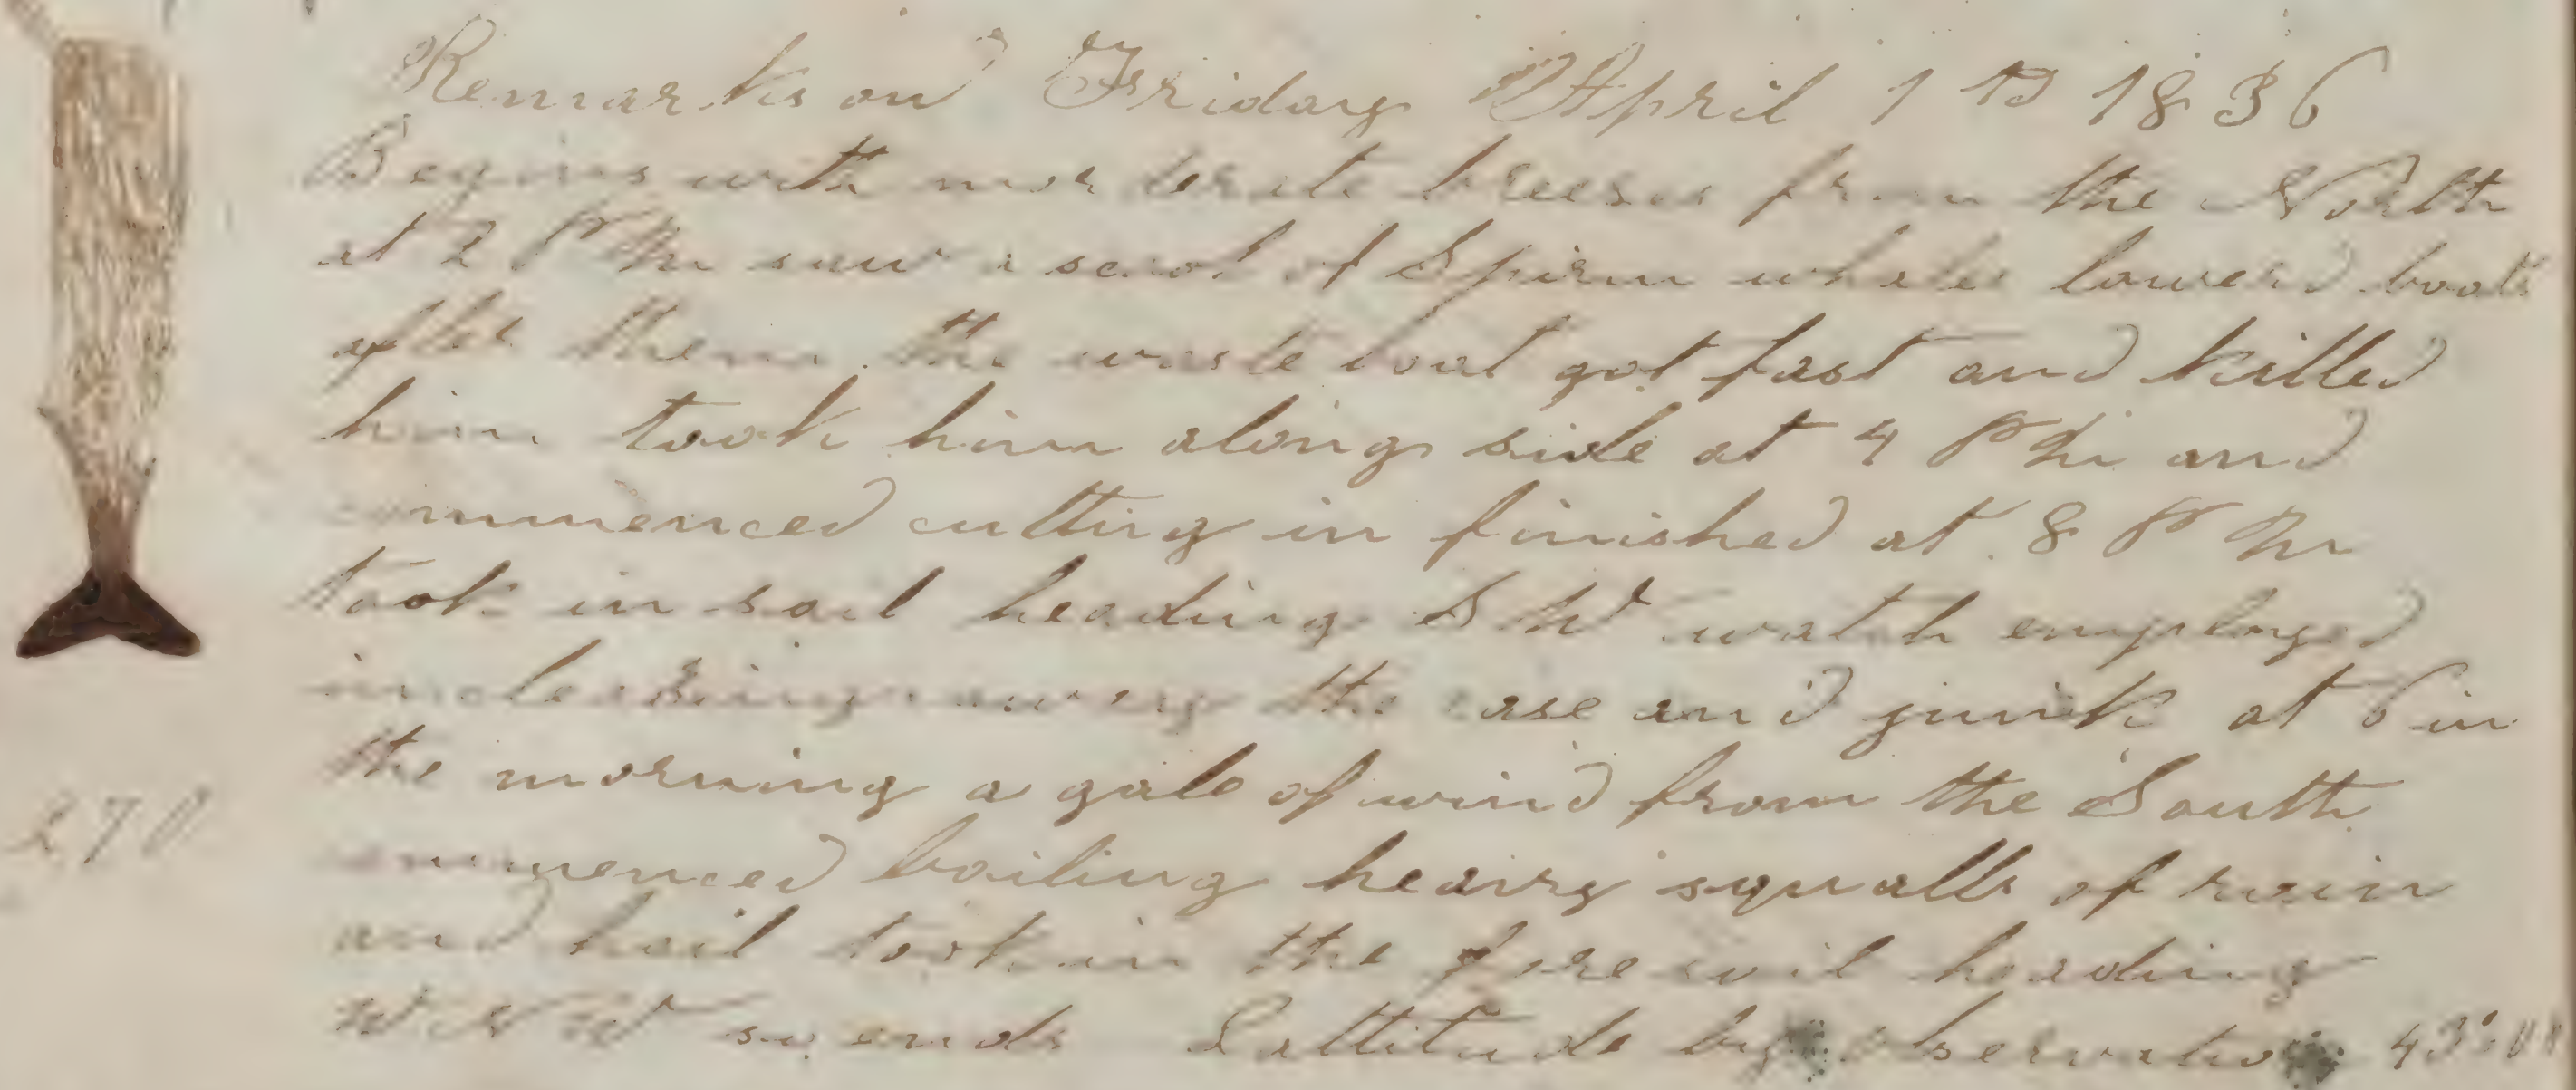 Remarks on Friday April 1 1836
Begins with moderate breeses from the North
at 2 P M saw a scool of Spirm whales lowerd boats
after them the waste boat got fast and killed
him took him along side at 4 P M and
commenced cutting in finished at 8 P M
took in sail heading S W watch employed
in clearing away the case and junk at 6 in
the morning a gale of wind from the South
commenced boiling heavy squalls of rain
and hail took in the fore sail heading
W N W so ends Lattitude by observation